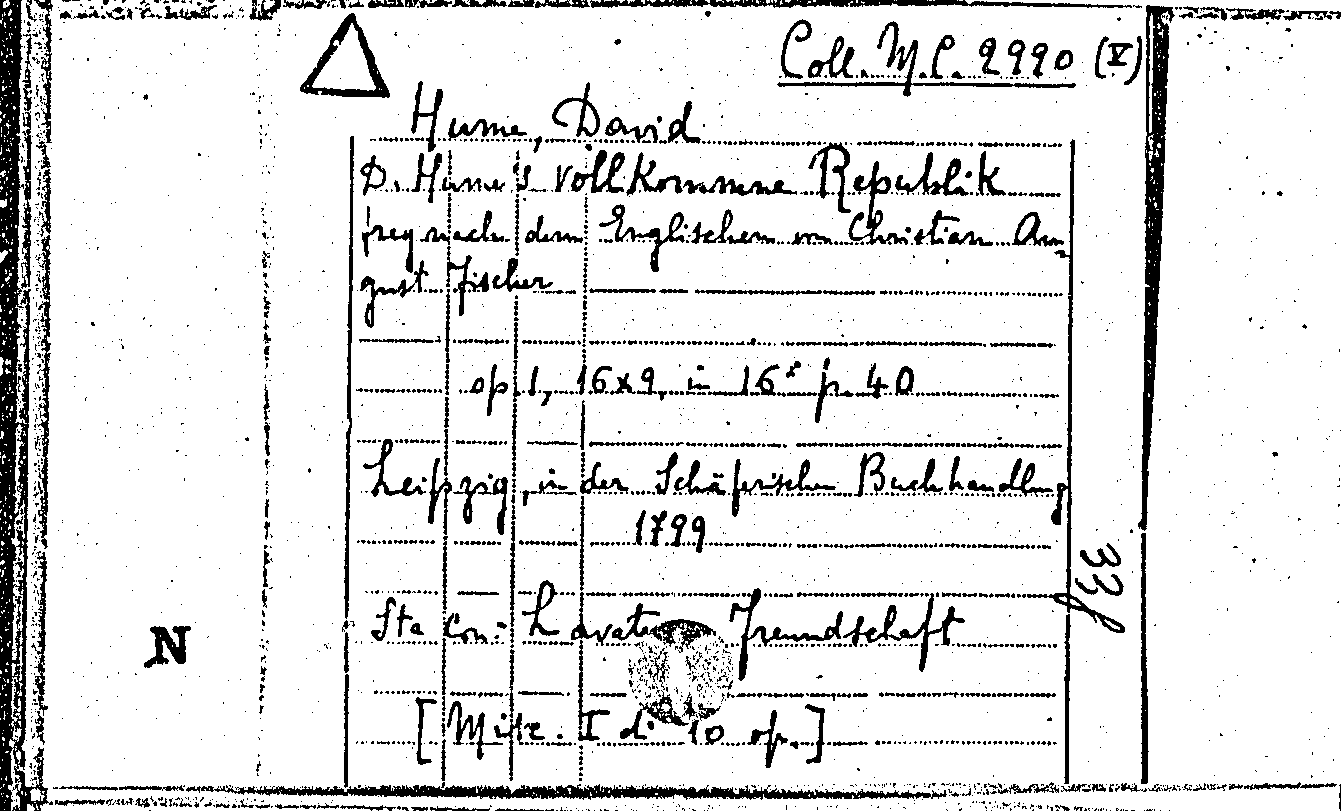 Coll. M.C. 2990 (V)
Hume, David
D. Hume's vollkommne Republik
frey nach dem Englischen von Christian Au-
gust Fischer
op. 1, 16x9, in 16° p. 40
Leipzig, in der Schäferischen Buchhandlung
1799
Sta con: Lavater Freundschaft
N
[Misc. I di 10 op.]